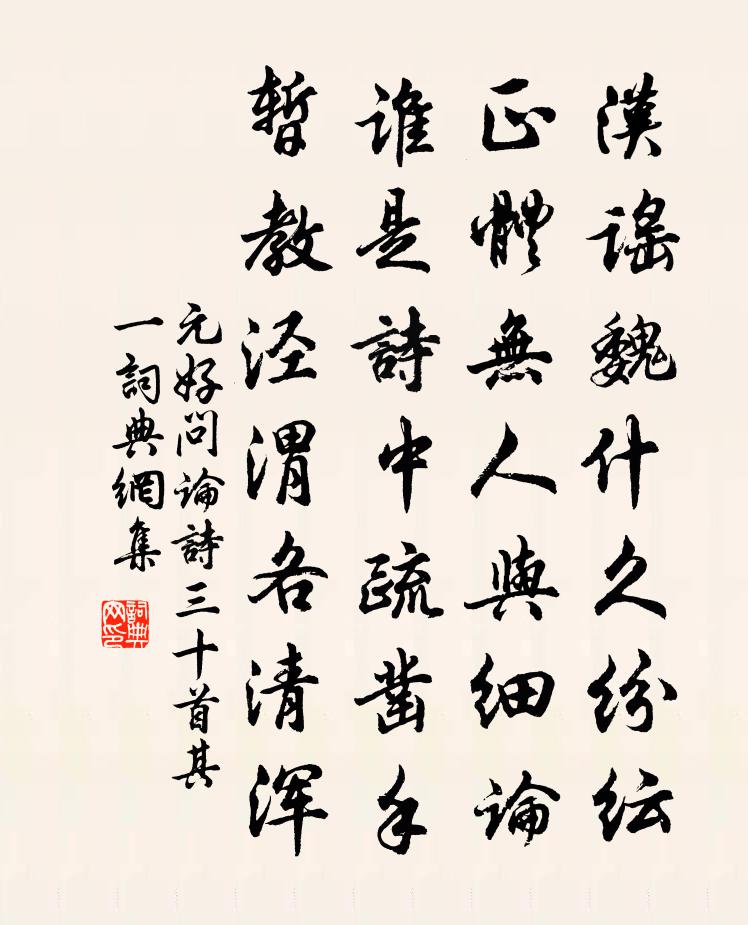 漢謠魏什久紛紜
正體無人與細論
誰是詩中疏鑿手
暫教涇渭各清渾
元好問論詩三十首其
一詞典網集
詞典网印